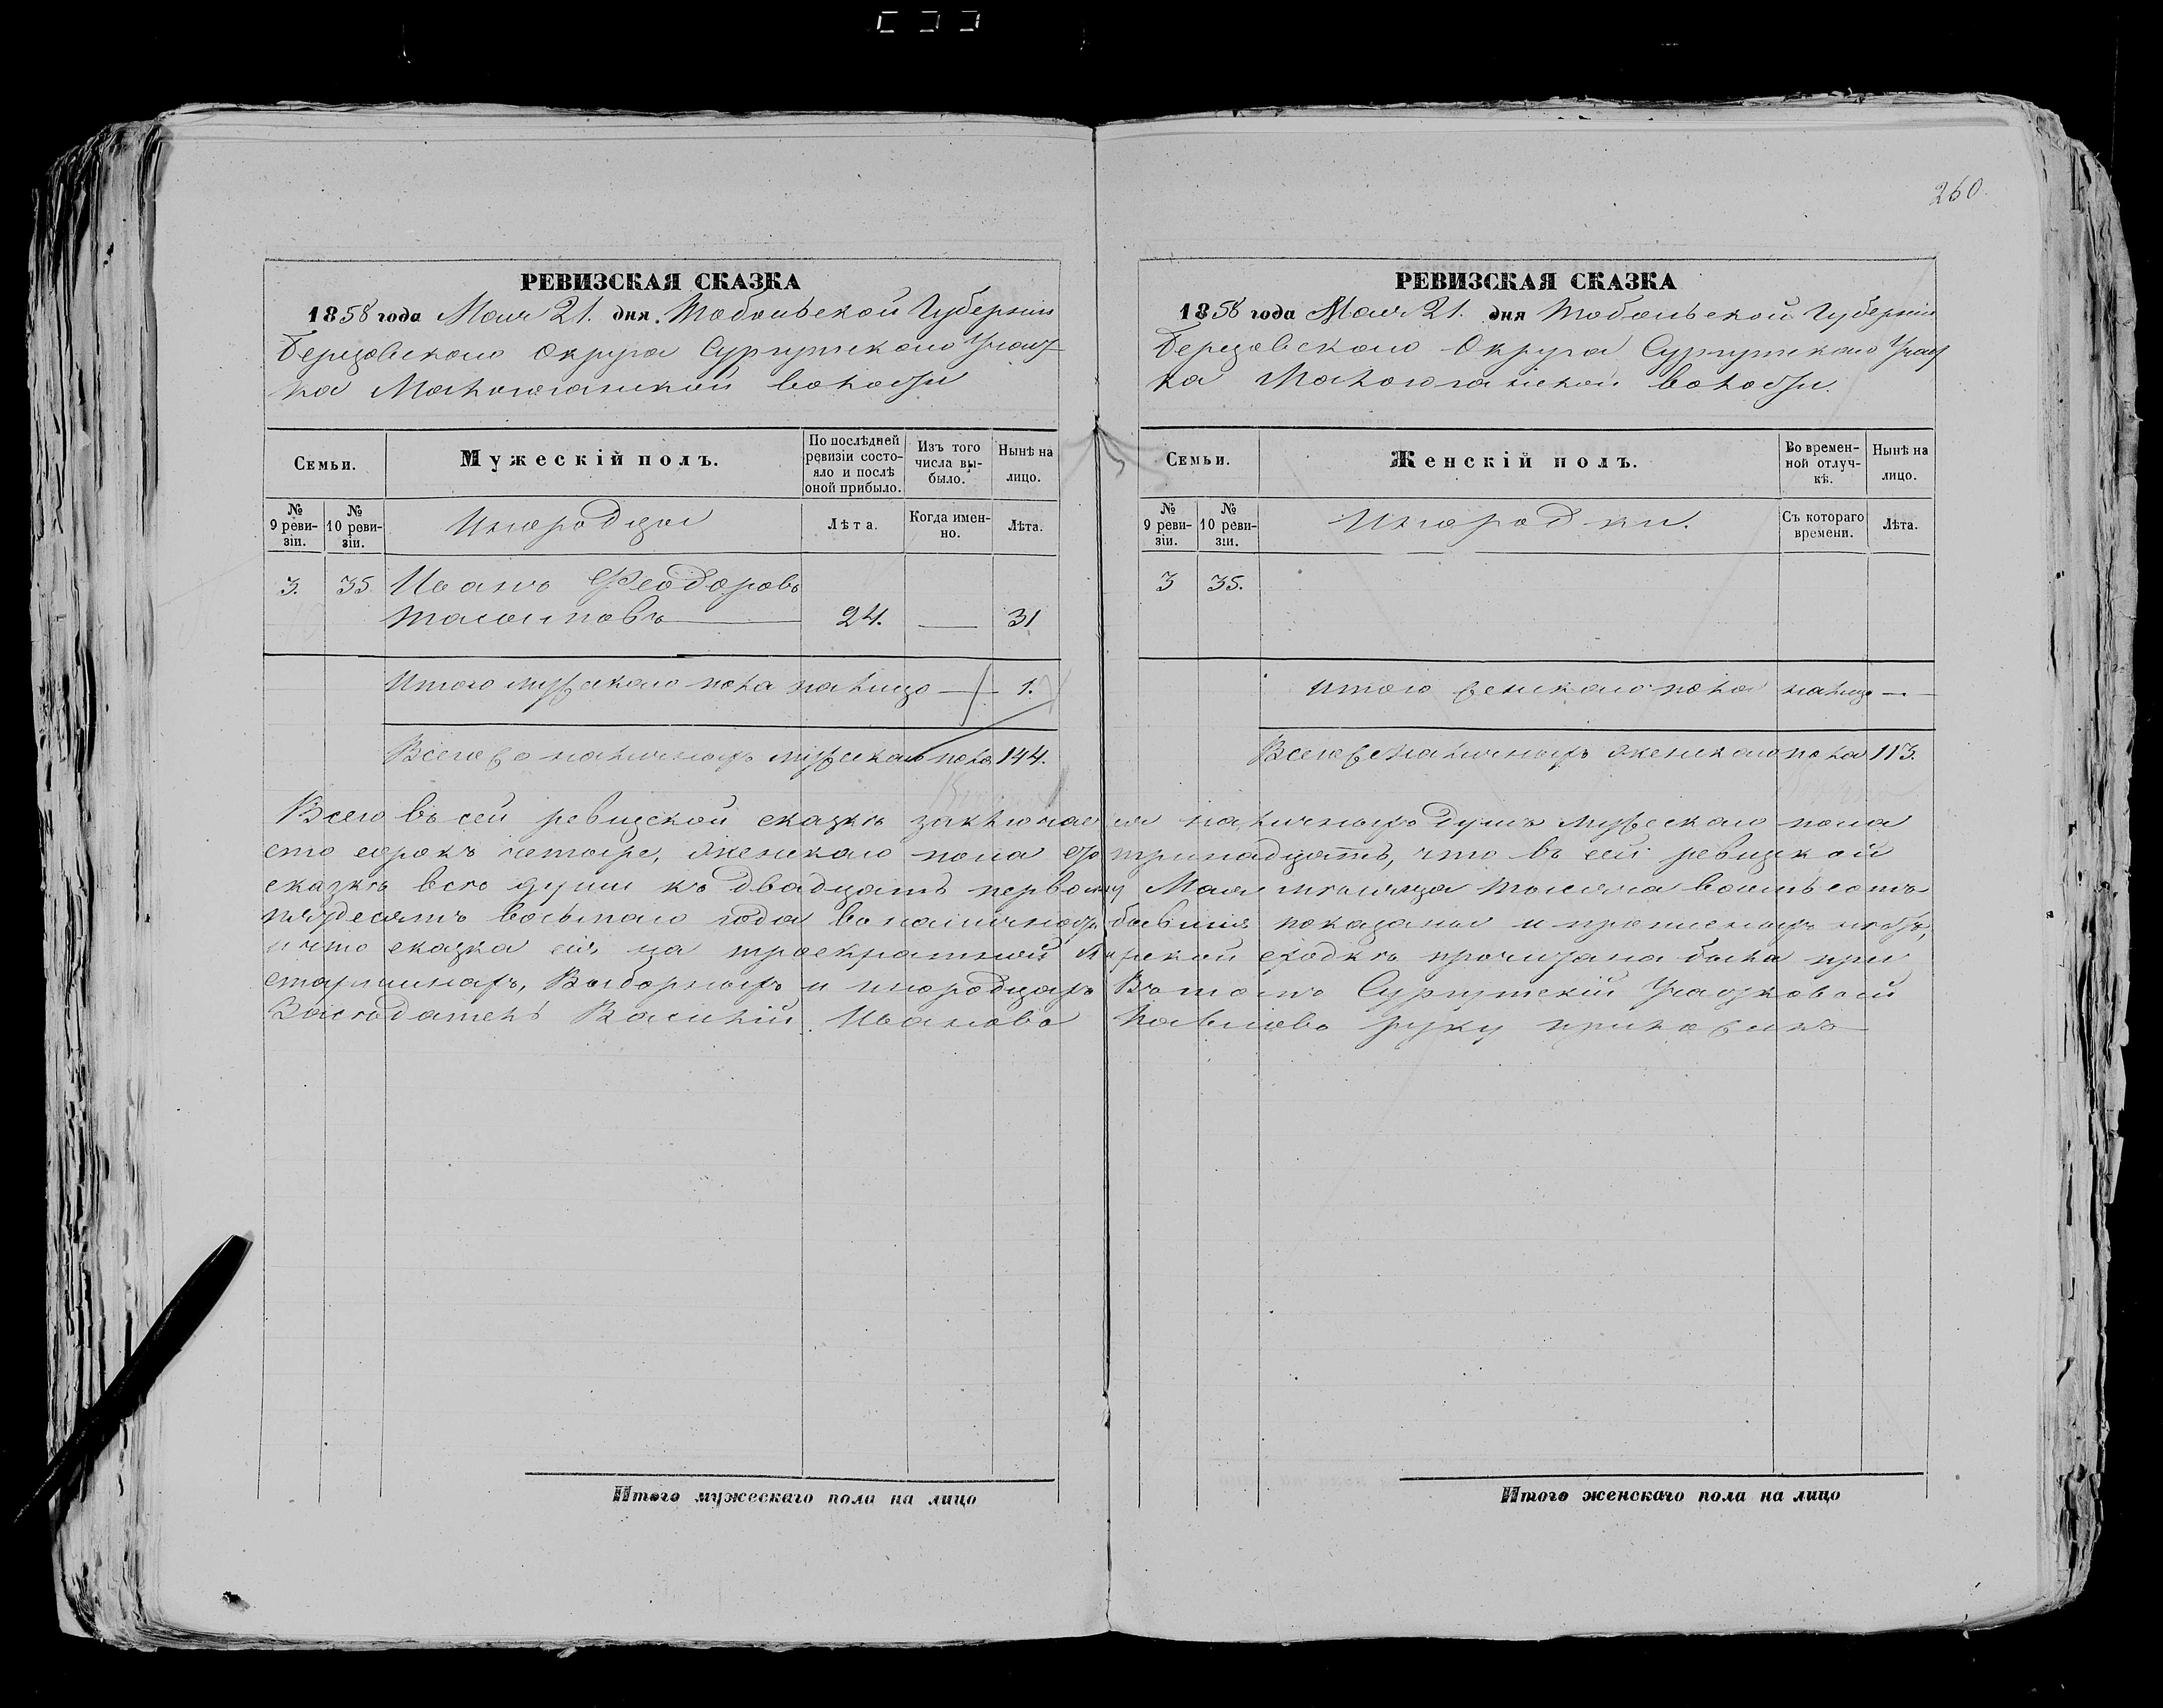 260.
РЕВИЗСКАЯ СКАЗКА
1858 года Мая 21. дня. Тобольской Губерніи
Березовскаго Округа Сургутскаго Участ
ка Малоюганской волости
Семьи.
Мужескій полъ.
По послѣдней ревизіи состояло и послѣ оной прибыло.
Изъ того числа выбыло.
Нынѣ на лицо.
№ 9 ревизіи.
№ 10 ревизіи.
Инородцы
Лѣта.
Когда именно.
Лѣта.
3. 35 Иванъ Феодоровъ
24. — 31
Итого мужескаго пола налицо — 1.
Всего же наличныхъ мужескаго пола 144.
РЕВИЗСКАЯ СКАЗКА
1858 года Мая 21. дня Тобольской Губерніи
Березовскаго Округа Сургутскаго Участ
ка Малоюганской волости.
Семьи.
Женскій полъ.
Во временной отлучкѣ.
Нынѣ на лицо.
№ 9 ревизіи.
№ 10 ревизіи.
Инородки.
Съ котораго времени.
Лѣта.
3 35.
Итого женскаго пола налицо —
Всего же наличныхъ женскаго пола 113.
Всего въ сей ревизской сказкѣ заключается наличныхъ душъ мужескаго пола
сто сорокъ четыре, женскаго пола сто тринадцать, что въ сей ревизской
сказкѣ всѣ души къ двадцать первому Мая мѣсяца тысяча восемь сотъ
пятдесятъ восьмаго года въ наличности бывшія показаны и прописныхъ нѣтъ,
и что сказка сія на троекратной Мирской сходкѣ прочитана была при
старшинахъ, Выборныхъ и инородцахъ Въ томъ Сургутскій Участковой
Засѣдатель Василій Ивановъ Павловъ руку приложилъ
Итого мужескаго пола на лицо
Итого женскаго пола на лицо